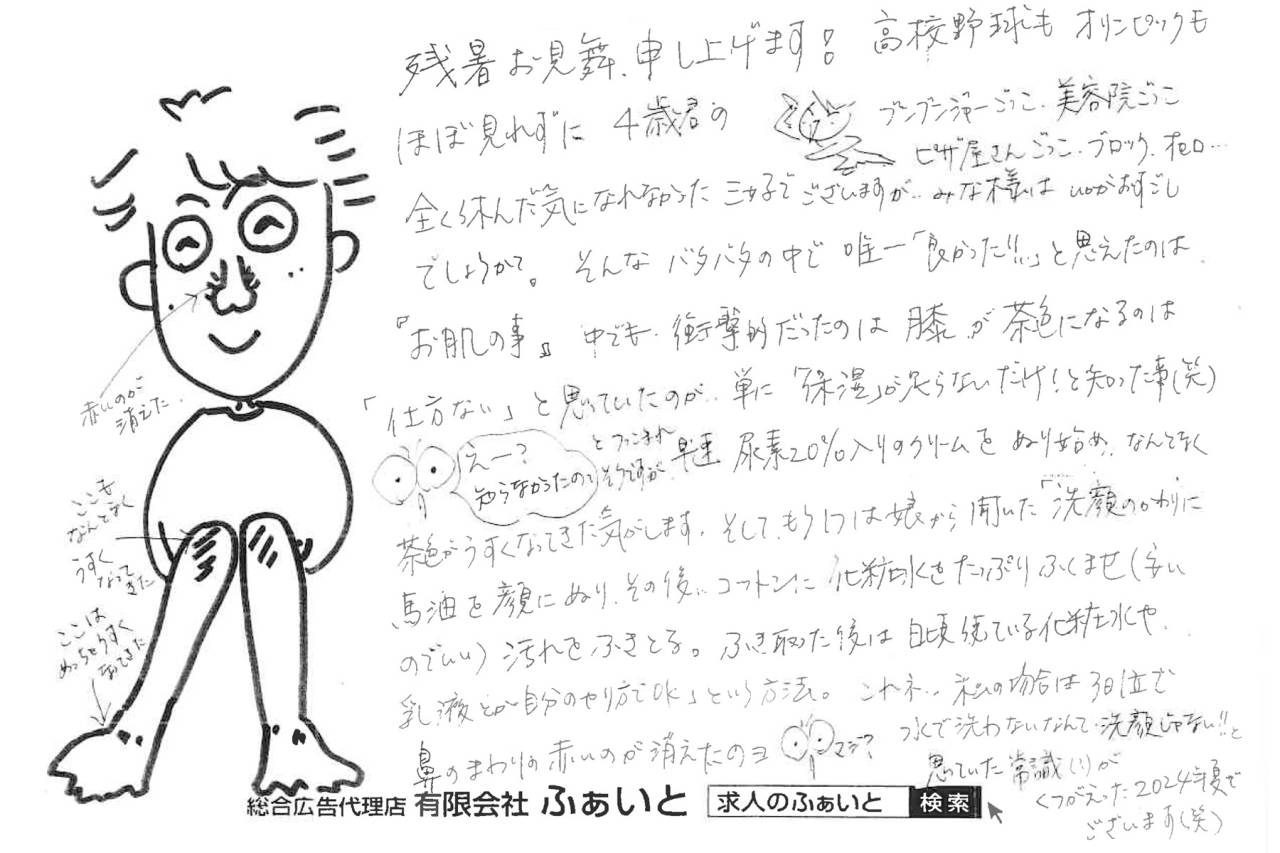 残暑お見舞、申し上げます! 高校野球も オリンピックも
ほぼ見れずに 4歳君の ブンブンジャーごっこ、美容院ごっこ
ピザ屋さんごっこ、ブロック、オセロ…
全く休んだ気になれなかった 三女子でございますが… みな様は いかがおすごし
でしょうか。 そんな バタバタの中で 唯一「良かった!!」と思えたのは
『お肌の事』 中でも、衝撃的だったのは 膝が 茶色になるのは
「仕方ない」と思っていたのが… 単に「保湿」が足らないだけ!と知った事(笑)
えー?
知らなかったの?
とつっこまれ
そうですが
早速 尿素20%入りのクリームを ぬり始め、なんとなく
茶色がうすくなってきた気がします。そして、もう1つは娘から聞いた「洗顔のかわりに
馬油を顔にぬり、その後… コットンに 化粧水をたっぷりふくませ(安い
のでいい) 汚れをふきとる。ふき取った後は 日頃使っている化粧水や、
乳液とか自分のやり方でOK」という方法。 これネ… 私の場合は3日位で
鼻のまわりの赤いのが消えたのヨ マジ? 水で洗わないなんて、洗顔じゃない!!と
思っていた常識(!)が
くつがえった2024年夏で
ございます(笑)
赤いのがここ
消えた。
ここも
なんとなく
うすく
なって
きた
ここは
めっちゃうすく
なってきた
総合広告代理店 有限会社 ふぁいと 求人のふぁいと 検索